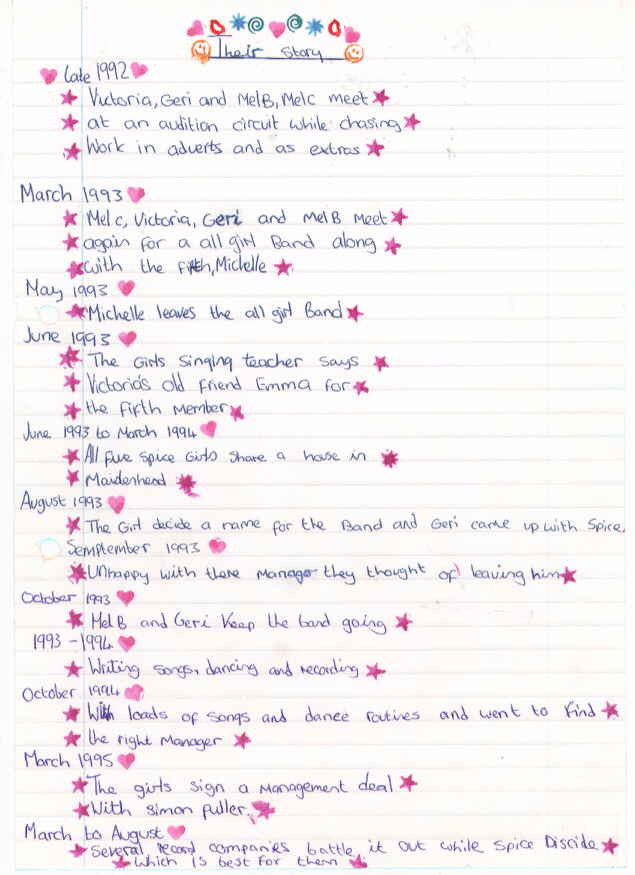 Their Story
Late 1992
Victoria, Geri and MelB, Melc meet
at an audition circuit while chasing
Work in adverts and as extras
March 1993
Mel c, Victoria, Geri and MelB Meet
again for a all girl Band along
with the fifth, Michelle
May 1993
Michelle leaves the all girl Band
June 1993
The Girls Singing teacher says
Victoria's old friend Emma for
the fifth Member
June 1993 to March 1994
All five Spice Girls share a house in
Maidenhead
August 1993
The Girl decide a name for the Band and Geri came up with Spice.
Semptember 1993
Unhappy with there Manager they thought of leaving him
October 1993
Mel B and Geri Keep the band going
1993 - 1994
Writing songs, dancing and recording
October 1994
With loads of songs and dance routines and went to find
the right Manager
March 1995
The girls sign a Management deal
With Simon fuller.
March to August
Several record companies battle it out while Spice Discide
Which is best for them